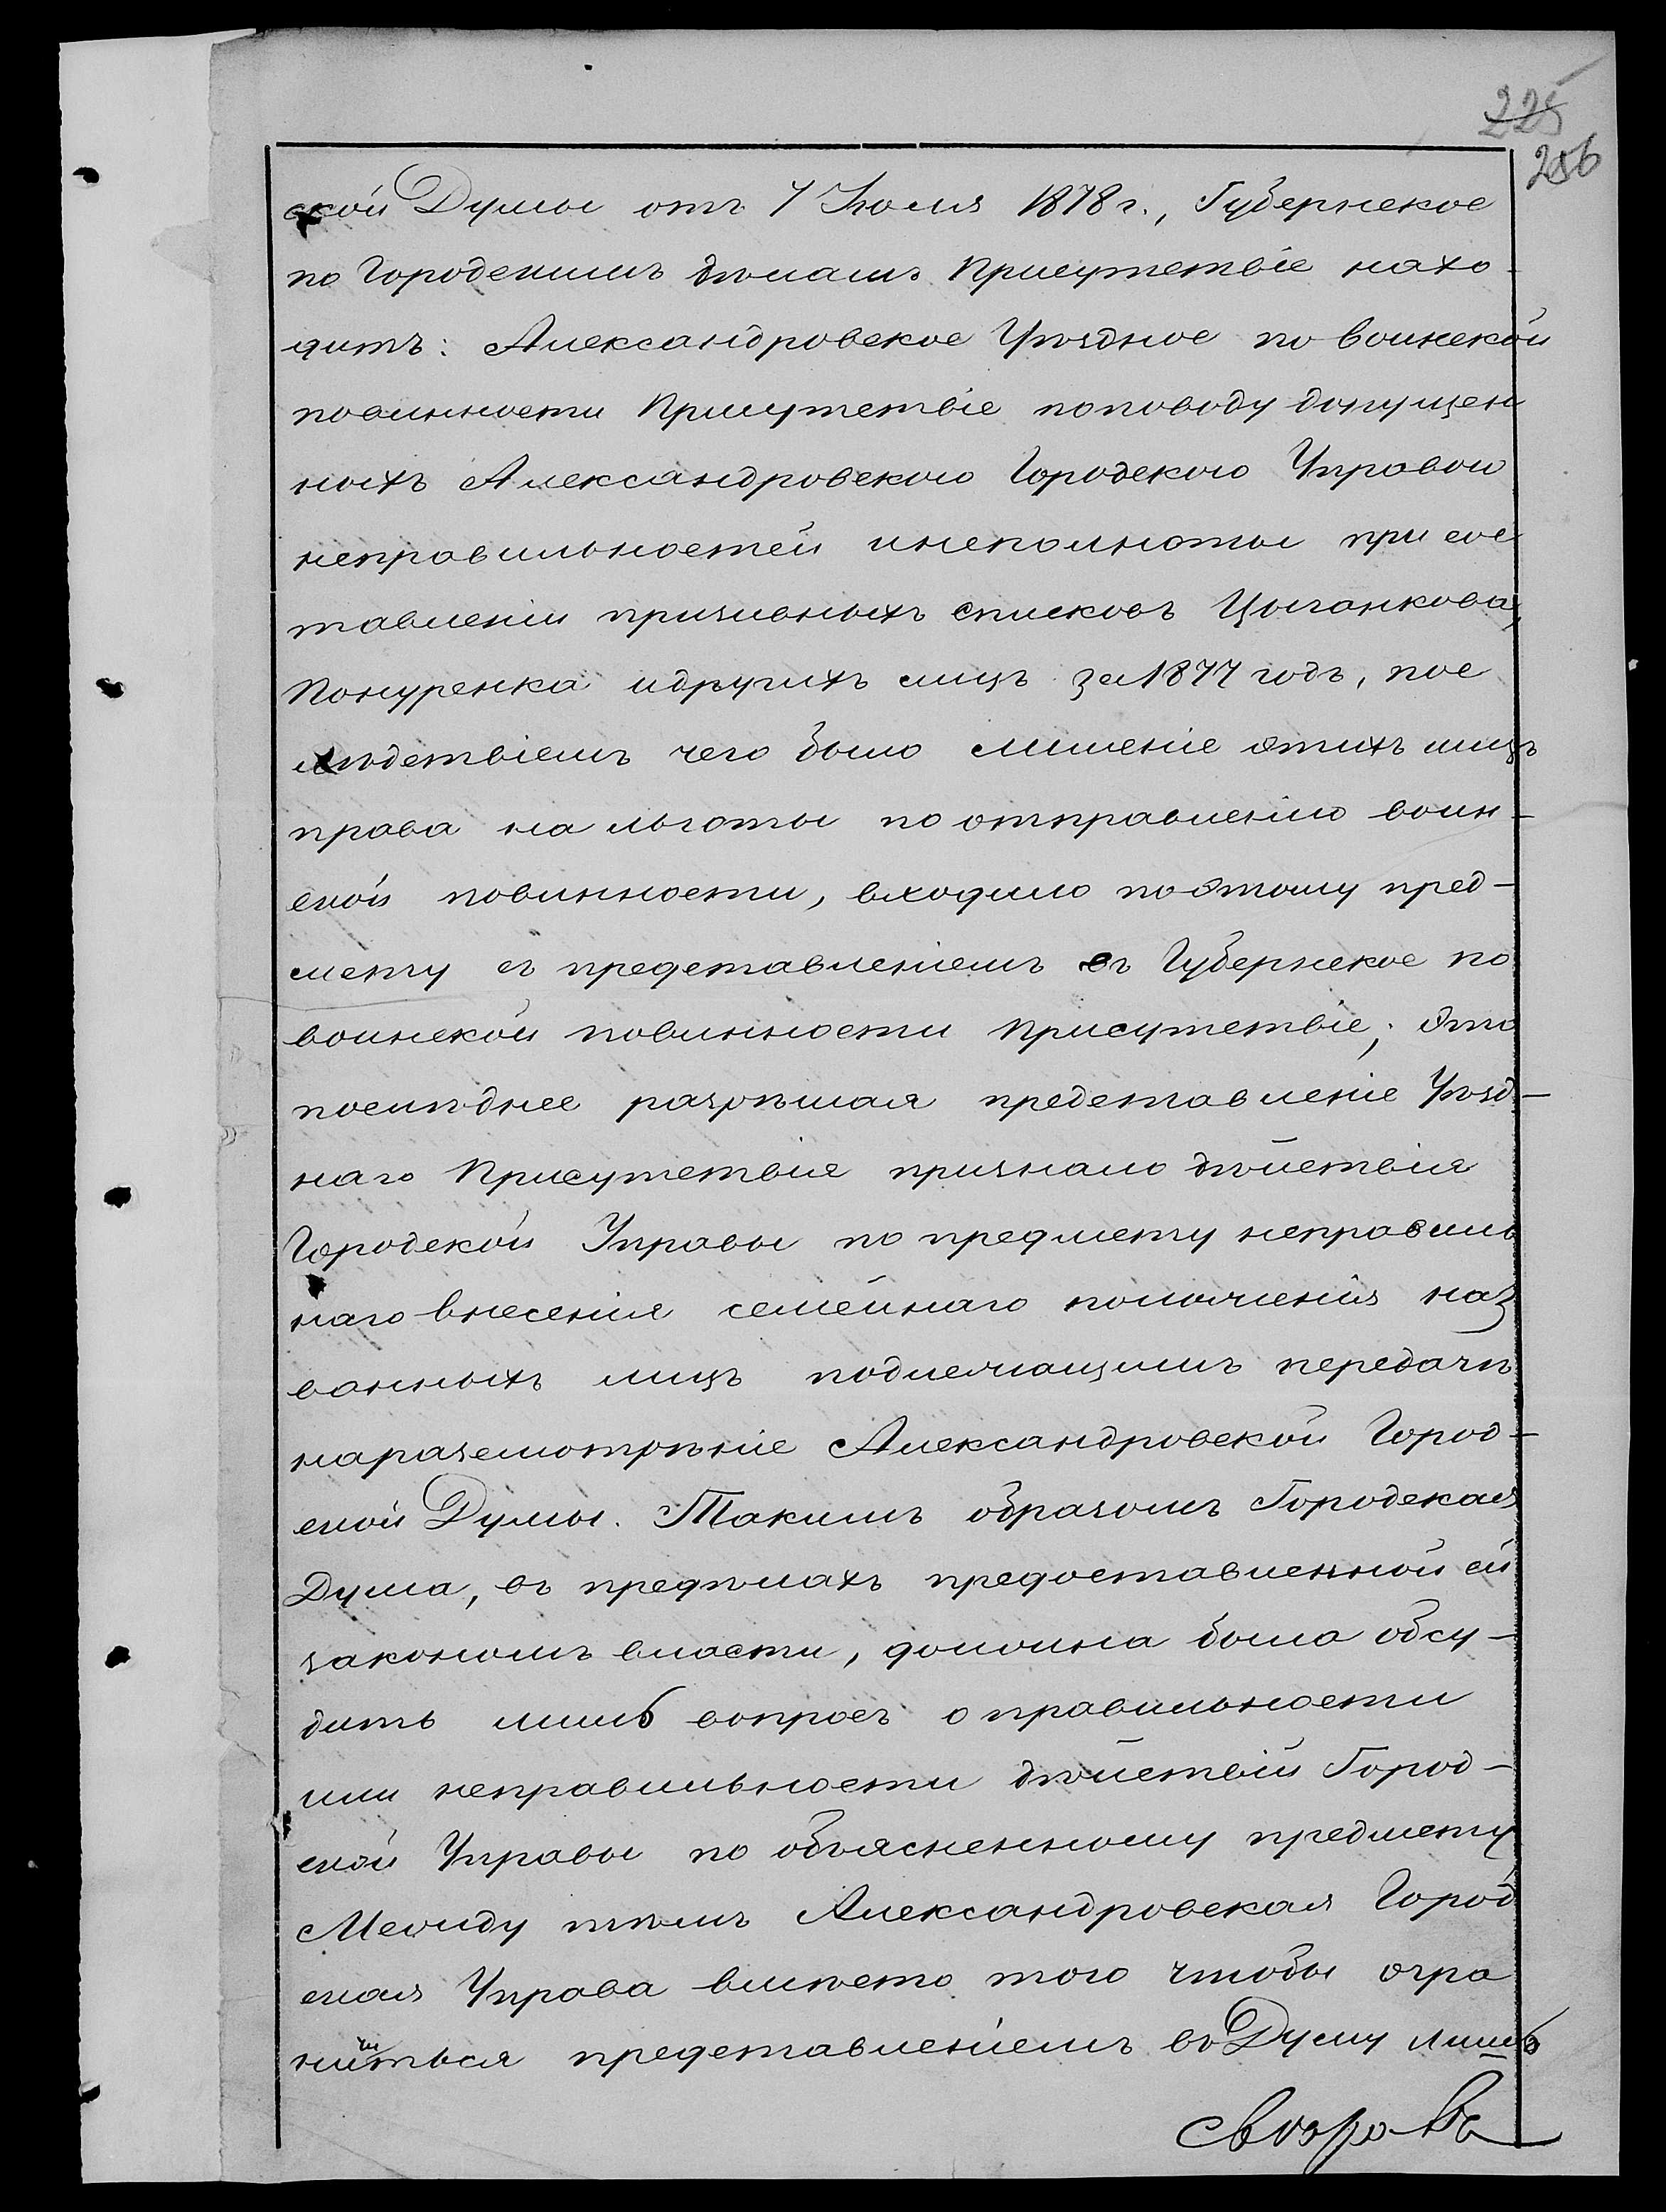 225
256
ской Думы отъ 7 Июля 1878 г., Губернское
по Городскимъ дѣламъ Присутствіе нахо-
дитъ: Александровское Уѣздное по воинской
повинности Присутствіе по поводу допущен
ныхъ Александровскою Городскою Управою
неправильностей и неполноты при сос
тавленіи призывныхъ списковъ Цыганкова,
Понуренка и другихъ лицъ за 1877 годъ, пос
лѣдствіемъ чего было лишеніе этихъ лицъ
права на льготы по отправленію воин-
ской повинности, входило по этому пред-
мету съ представленіемъ въ Губернское по
воинской повинности Присутствіе; это
послѣднее разрѣшая представленіе Уѣзд-
наго Присутствія признало дѣйствія
Городской Управы по предмету неправиль
наго внесенія семейнаго положенія наз
ванныхъ лицъ подлежащимъ передачѣ
на разсмотрѣніе Александровской Город-
ской Думы. Такимъ образомъ Городская
Дума, въ предѣлахъ предоставленной ей
закономъ власти, должна была обсу-
дить лишь вопросъ о правильности
или неправильности дѣйствій Город-
ской Управы по объясненному предмету
Между тѣмъ Александровская Город
ская Управа вмѣсто того чтобы огра
ничиться представленіемъ въ Думу лишь